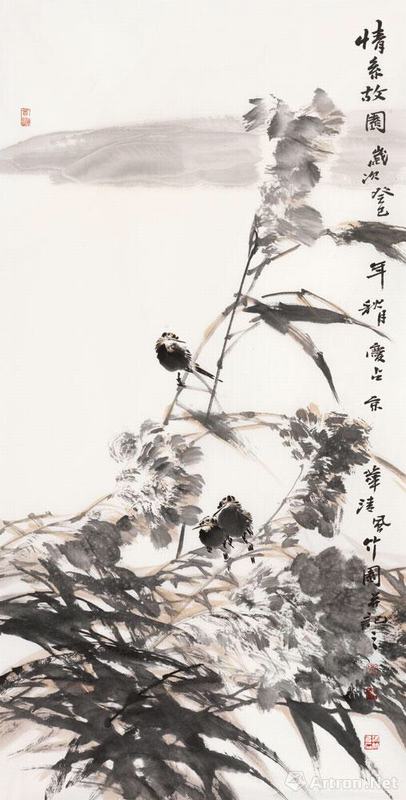 情系故園歲次癸巳年秋月慶占京華清風竹園并記之
Artron.Net